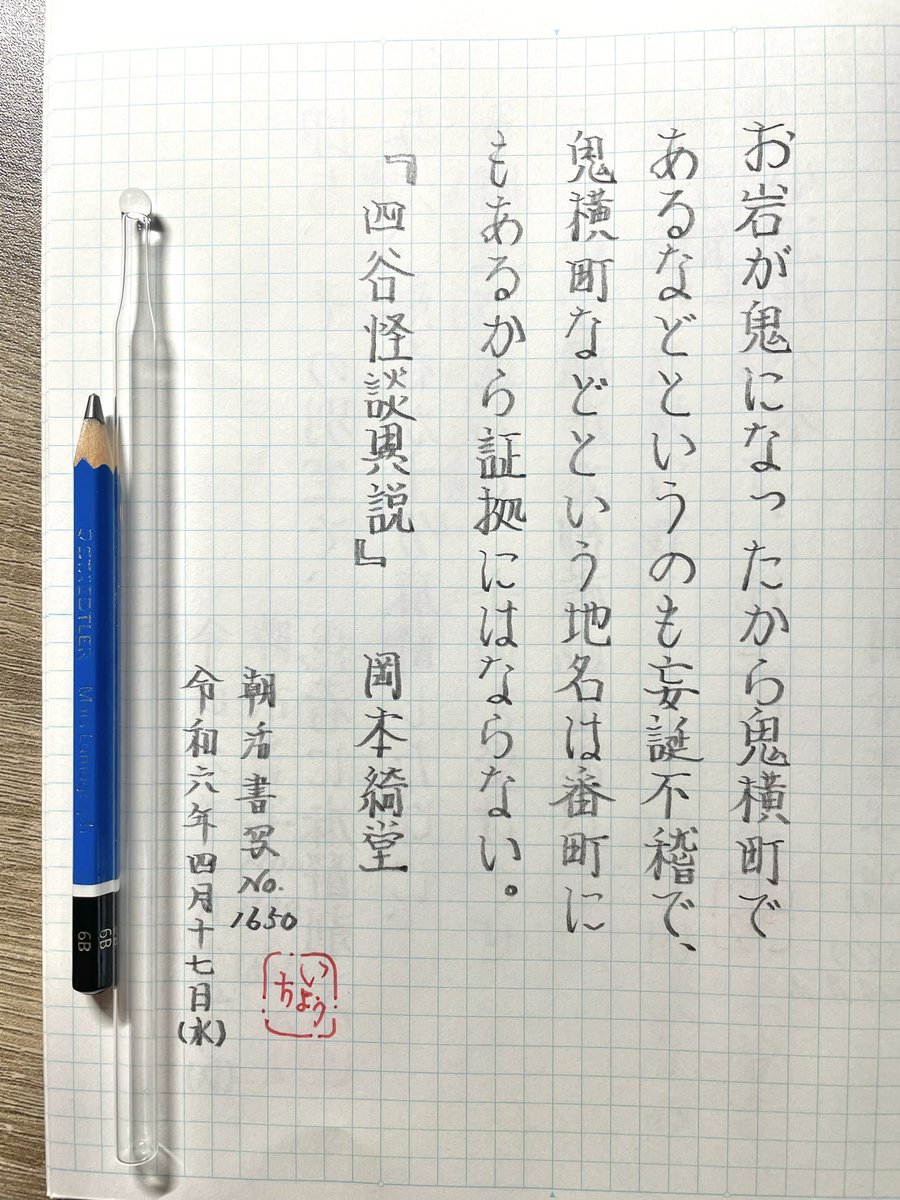 お岩が鬼になったから鬼横町で
あるなどというのも妄誕不稽で、
鬼横町などという地名は番町に
もあるから証拠にはならない。
『四谷怪談異説』 岡本綺堂
朝活書写No.1650
令和六年四月十七日(水)
いちよう
STAEDTLER Mars Lumograph
6B 6B